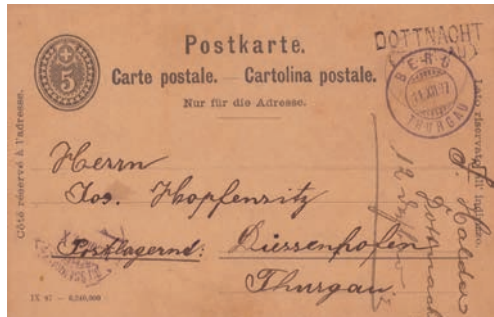 Postkarte.
Carte postale. — Cartolina postale.
Nur für die Adresse.
5
DOTTNACHT
BERG
11.XII.97
THURGAU
Côté réservé à l'adresse.
Lato riservato all'indirizzo.
Herrn
Jos. Hopfensitz
Postlagernd: Diessenhofen
Thurgau.
IX 97 — 6,240,000